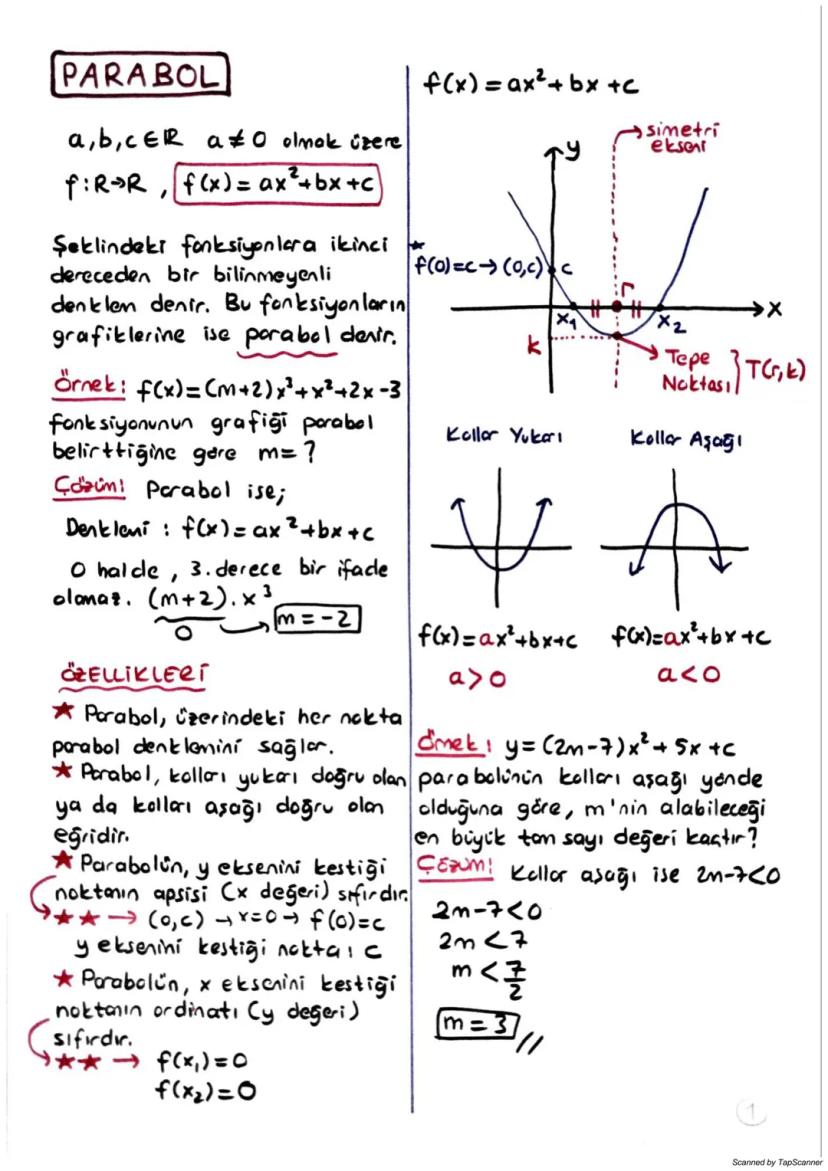 PARABOL
a,b,c ∈ ℝ a ≠ 0 olmak üzere
f:R→R , f(x) = ax²+bx+c
Şeklindeki fonksiyonlara ikinci
dereceden bir bilinmeyenli
denklem denir. Bu fonksiyonların
grafiklerine ise parabol denir.
Örnek: f(x)=(m+2)x³+x²+2x-3
fonksiyonunun grafiği parabol
belirttiğine göre m= ?
Çözüm: Parabol ise;
Denklemi : f(x)=ax²+bx+c
O halde , 3.derece bir ifade
olamaz. (m+2).x³
0 → m=-2
ÖZELLİKLERİ
★ Parabol, üzerindeki her nokta
parabol denklemini sağlar.
★ Parabol, kolları yukarı doğru olan
ya da kolları aşağı doğru olan
eğridir.
★ Parabolün, y eksenini kestiği
noktanın apsisi (x değeri) sıfırdır.
★★ → (0,c) → x=0 → f(0)=c
y eksenini kestiği nokta : c
★ Parabolün, x eksenini kestiği
noktanın ordinatı (y değeri)
sıfırdır.
★★ → f(x₁)=0
f(x₂)=0
f(x) = ax²+bx+c
simetri
ekseni
y
★
f(0)=c→(0,c) c
r
x₁ x₂ x
k
Tepe
Noktası } T(r,k)
Kollar Yukarı Kollar Aşağı
f(x)=ax²+bx+c f(x)=ax²+bx+c
a>0 a<0
Örnek: y= (2m-7)x²+ 5x +c
parabolünün kolları aşağı yönde
olduğuna göre, m'nin alabileceği
en büyük tam sayı değeri kaçtır?
Çözüm: Kollar aşağı ise 2m-7<0
2m-7<0
2m<7
m<7/2
m=3 //
1
Scanned by TapScanner